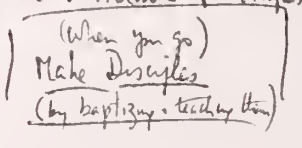 (When you go)
Make Disciples
(by baptizing + teaching them)